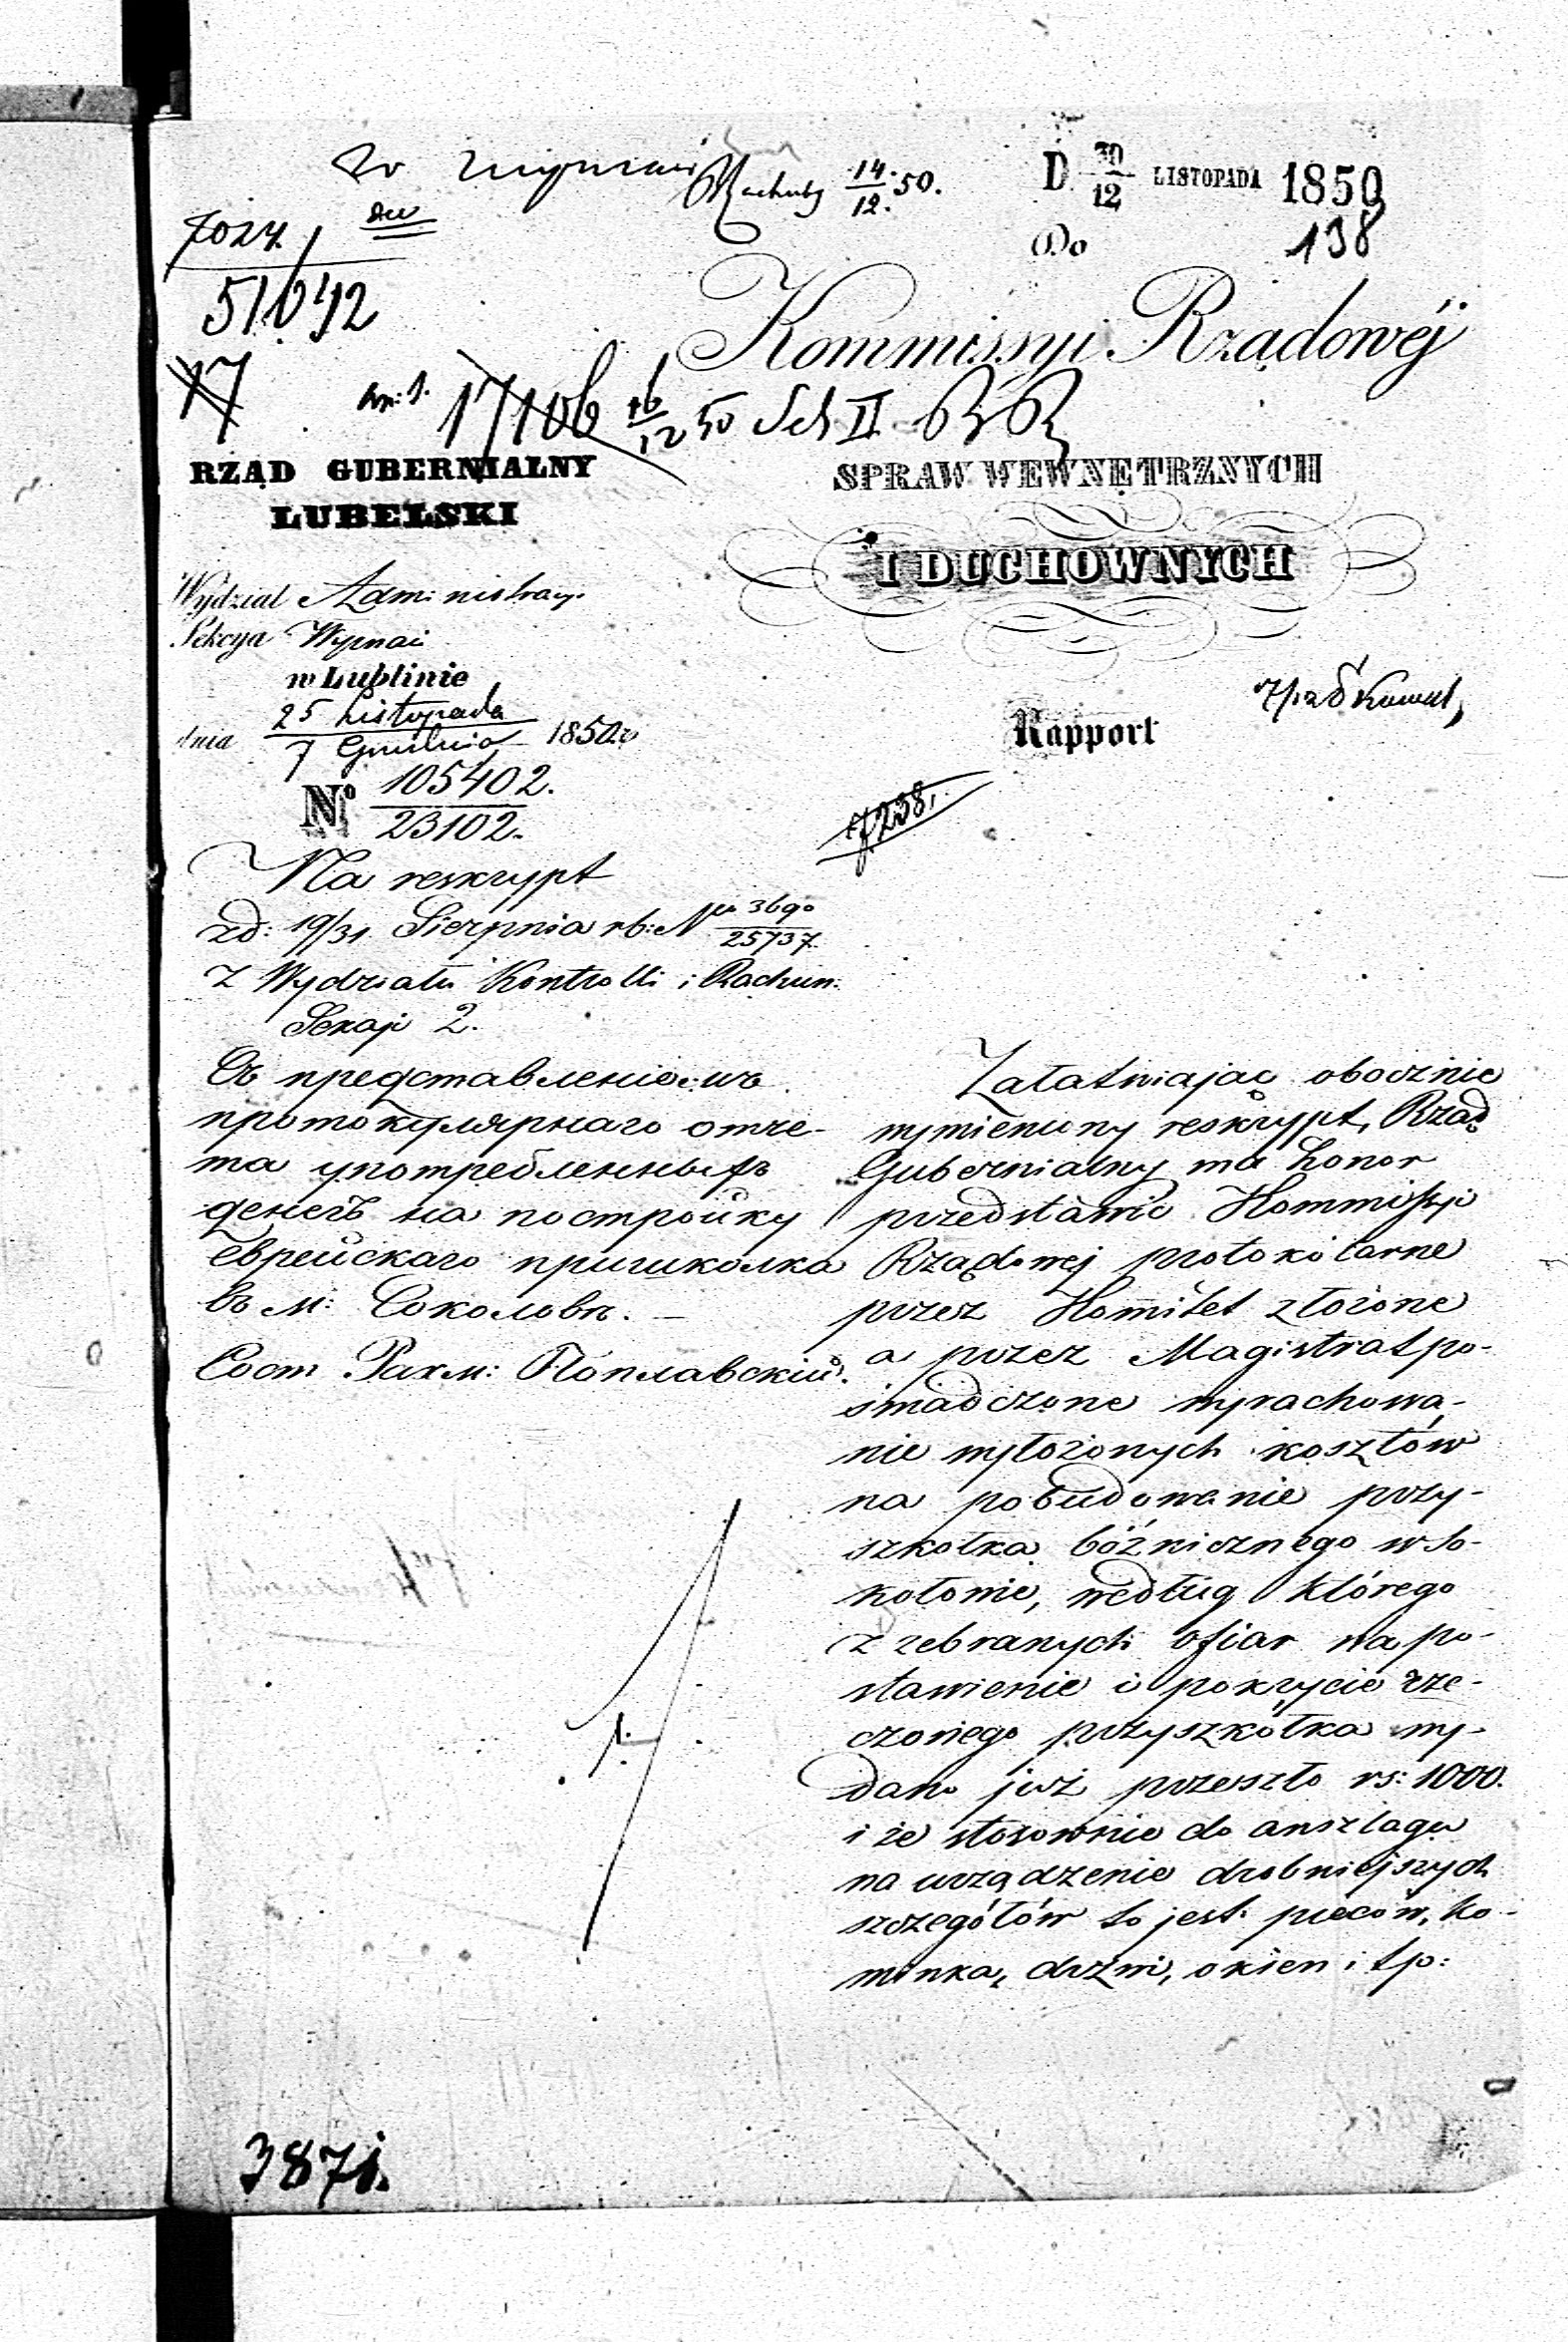 Rachuby 14/12. 50.
D. 30/12 LISTOPADA 1850
Do
138
51042
Kommissyi Rządowéj
17
17106 16/12 50 Sek II
RZĄD GUBERNIALNY
LUBELSKI
SPRAW WEWNĘTRZNYCH
I DUCHOWNYCH
Wydział Administracy.
Sekcya Wyznań
w Lublinie
dnia 25 Listopada / 7 Grudnia 1850 r
Rapport
No 105402. / 23102.
7238.
Na reskrypt
zd: 19/31 Sierpnia rb: No 3690 / 25737.
z Wydziału Kontrolli i Rachun:
Sekcji 2.
Съ представленіемъ
протокулярнаго отче-
та употребленныхъ
денегъ на постройку
еврейскаго пришколка
въ м: Соколовѣ. —
Сост Рахм: Поплавскій.
Załatwiając obocznie
wymieniony reskrypt, Rząd
Gubernialny ma honor
przedstawić Kommissji
Rządowej protokólarne
przez Komitet złożone
a przez Magistrat po-
świadczone wyrachowa-
nie wyłożonych kosztów
na pobudowanie przy-
szkółka bóżnicznego w So-
kołowie, według którego
z zebranych ofiar na po-
stawienie i pokrycie rze-
czonego przyszkółka wy-
dano już przeszło rs: 1000.
i że stosownie do anszlagu
na urządzenie drobniejszych
szczegółów to jest: pieców, ko-
minka, drzwi, okien i tp:
3871.